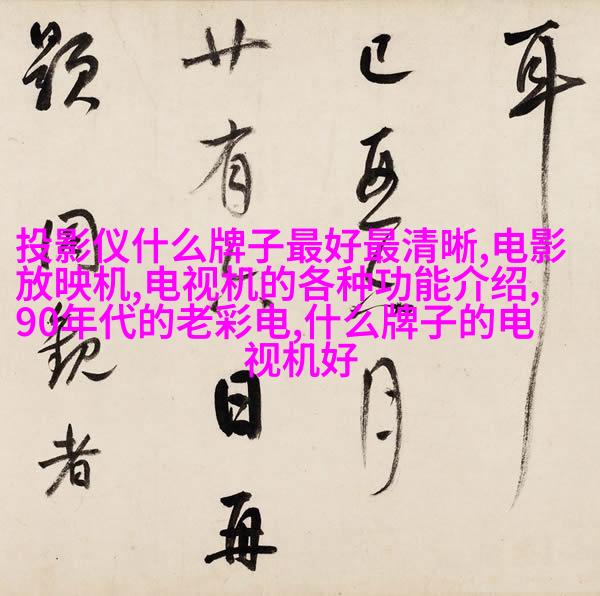 投影仪什么牌子最好最清晰,电影
放映机,电视机的各种功能介绍,
90年代的老彩电,什么牌子的电
视机好
耳
已 月
廿有 日再
題同觀者